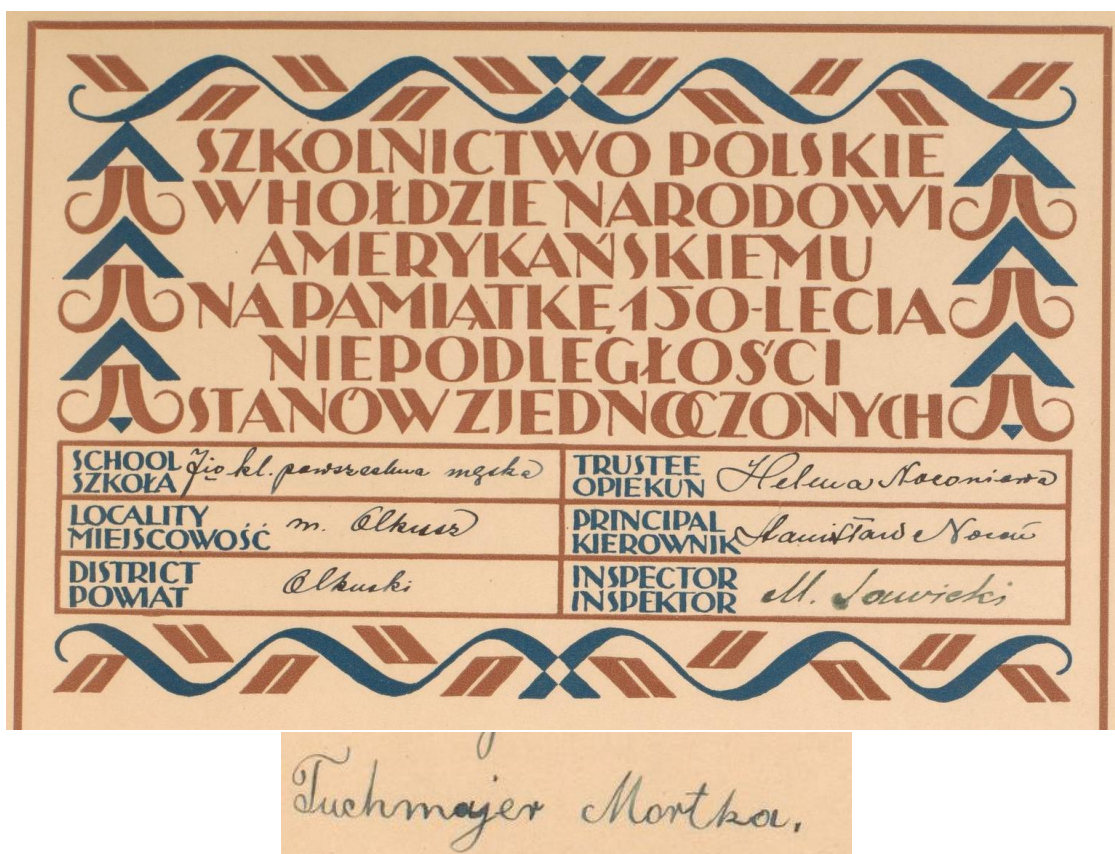 SZKOLNICTWO POLSKIE
W HOŁDZIE NARODOWI
AMERYKAŃSKIEMU
NA PAMIĄTKĘ 150-LECIA
NIEPODLEGŁOŚCI
STANÓW ZJEDNOCZONYCH
SCHOOL
SZKOŁA
kl. powszechna męska
TRUSTEE
OPIEKUN
Helena Noconiowa
LOCALITY
MIEJSCOWOŚĆ
m. Olkusz
PRINCIPAL
KIEROWNIK
Stanisław Nocoń
DISTRICT
POWIAT
Olkuski
INSPECTOR
INSPEKTOR
M. Sawicki
Tuchmajer Mortka.